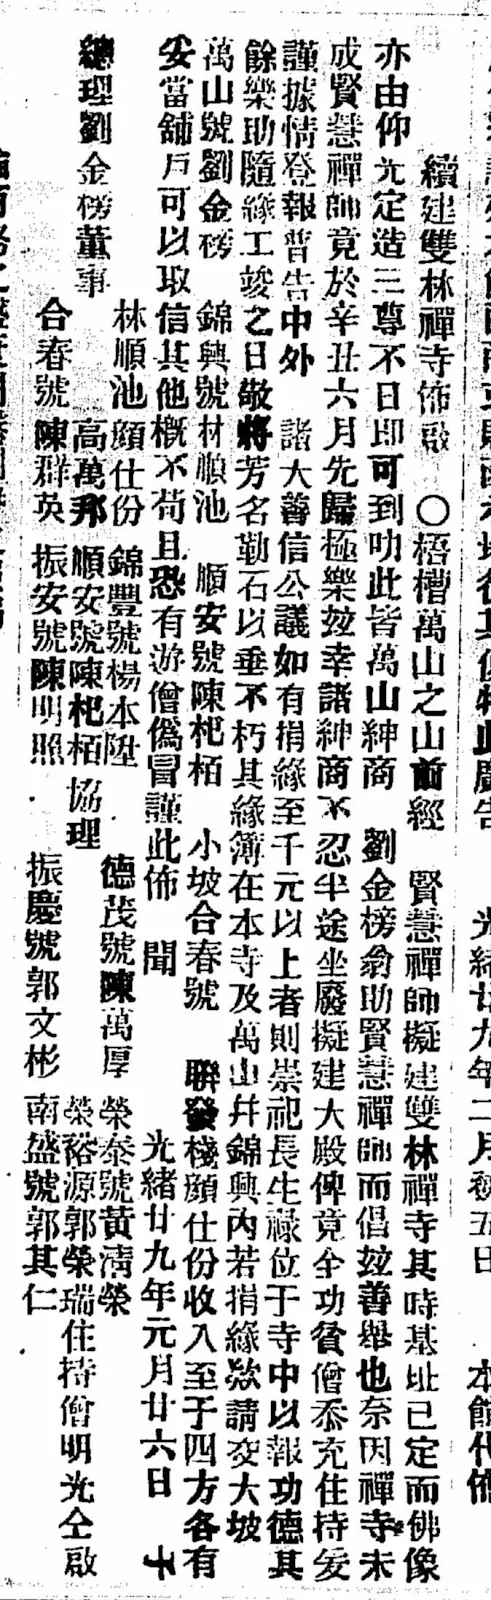 光緒廿九年二月初五日　本館代佈
續建雙林禪寺佈啟　〇梧槽萬山之山前經　賢慧禪師擬建雙林禪寺其時基址已定而佛像
亦由仰光定造三尊不日即可到叻此皆萬山紳商　劉金榜翁助賢慧禪師而倡玆善舉也奈因禪寺未
成賢慧禪師竟於辛丑六月先歸極樂玆幸諸紳商不忍半途坐廢擬建大殿俾竟全功貧僧忝充住持爰
謹據情登報普告中外　諸大善信公議如有捐緣至千元以上者則崇祀長生祿位于寺中以報功德其
餘樂助隨緣工竣之日敬將芳名勒石以垂不朽其緣簿在本寺及萬山并錦興內若捐緣欵請交大坡
萬山號劉金榜　錦興號林順池　順安號陳杞栢　小坡合春號　聯發棧顔仕份收入至于四方各有
安當舖戶可以取信其他概不苟且恐有游僧偽冒謹此佈　聞　光緒廿九年元月廿六日
總理劉金榜董事　林順池顔仕份　錦豐號楊本陞　德茂號陳萬厚　榮泰號黃清榮
高萬邦　順安號陳杞栢　協理　榮裕源郭榮瑞住持僧明光仝啟
合春號陳群英　振安號陳明照　振慶號郭文彬　南盛號郭其仁